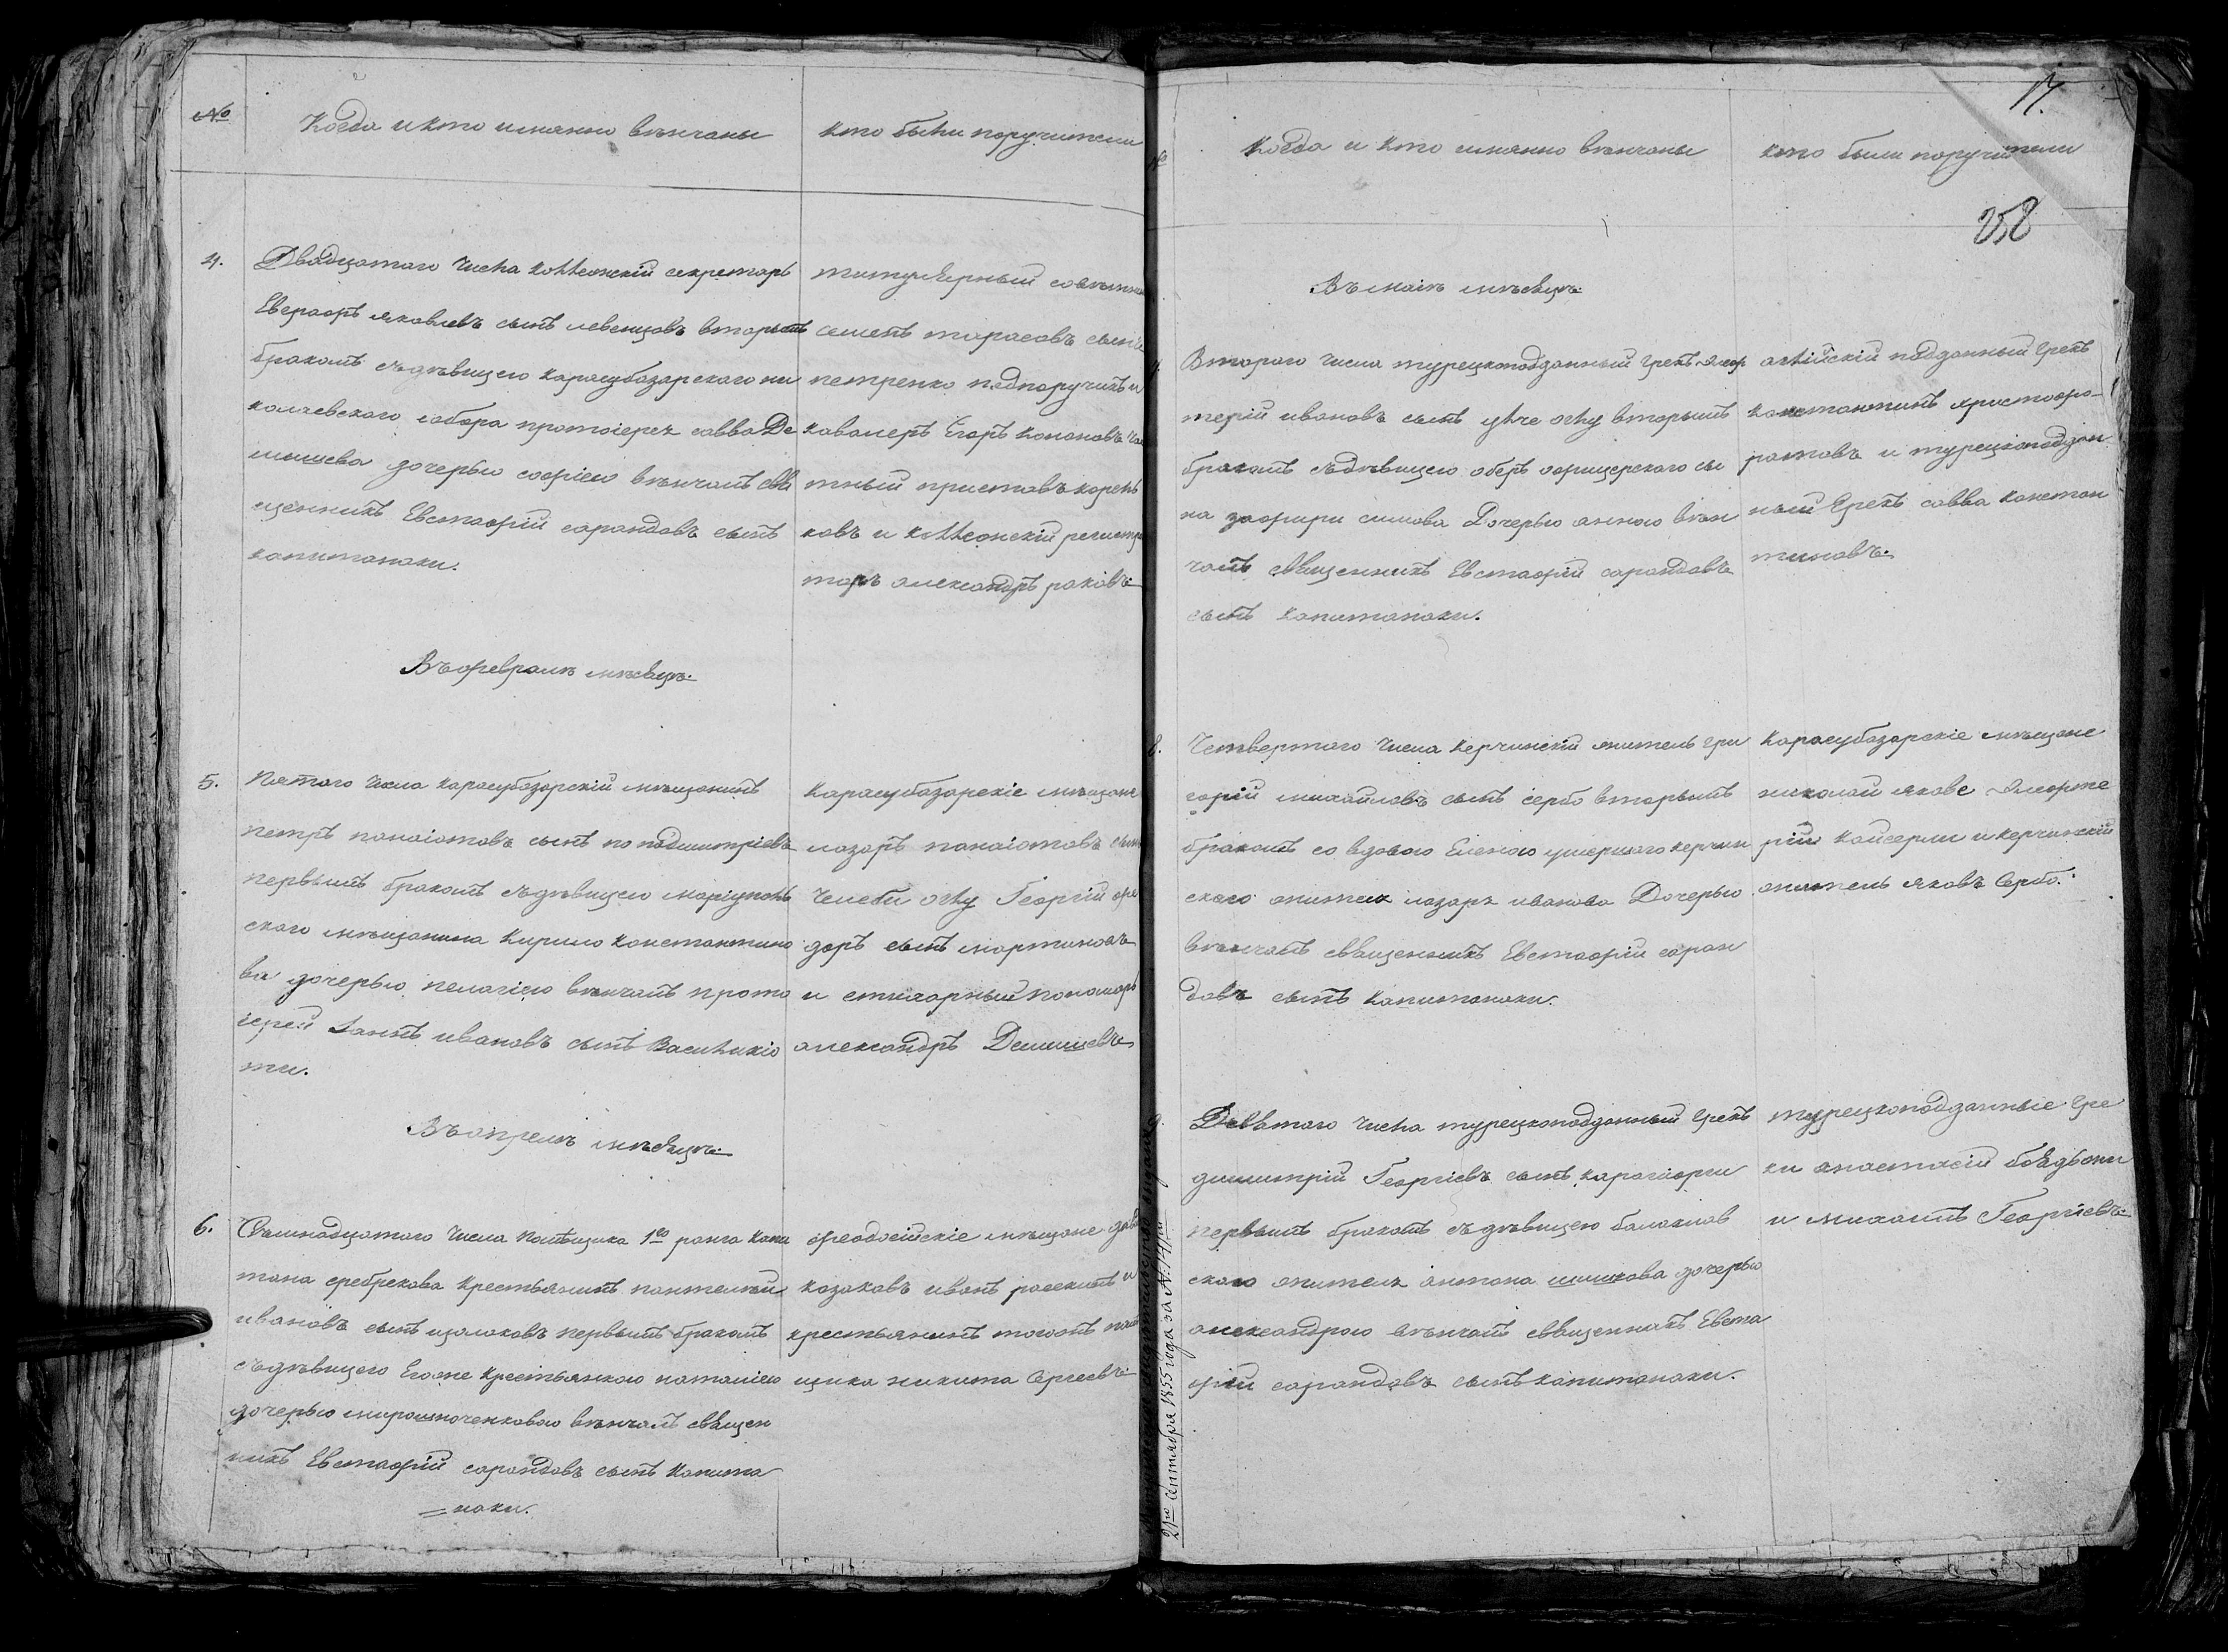 №
Когда и кто имянно вѣнчаны
кто были поручители
4.
Двадцатаго числа коллежскій секретарь
Евграфъ яковлевъ сынъ левенцовъ вторымъ
бракомъ съ дѣвицею карасубазарскаго ни
колаевскаго собора протоіерея савва Де
мишева дочерью софіею вѣнчалъ свя
щенникъ Евстафій сарандовъ сынъ
капитанаки.
титулярный совѣтни
семенъ тарасовъ сынъ
петренко подпоручикъ и
кавалеръ Егоръ кононовъ ча
тный приставъ корень
ковъ и коллежскій регистра
торъ александръ раковъ
Въ февралѣ мѣсяцѣ
5.
Пятаго числа карасубазарскій мѣщанинъ
петръ панаіотовъ сынъ попадимитріевъ
первымъ бракомъ съ дѣвицею маріуполь
скаго мѣщанина Кирило константино
ва дочерью пелагіею вѣнчалъ прото
іерей Іаннъ ивановъ сынъ Василикіо
ти.
Карасубазарскіе мѣщане
лазарь панаіотовъ сынъ
Челеби оглу Георгій фео
доръ сынъ мартиновъ
и стихарный пономарь
александръ Демишевъ
Въ апрелѣ мѣсяцѣ
6.
Семнадцатаго числа помѣщика 1го ранга капи
тана сребрякова крестьянинъ пантелѣй
ивановъ сынъ цолаковъ первымъ бракомъ
съ дѣвицею Егоже крестьянкою наталіею
дочерью мирошноченковою вѣнчалъ священ
никъ Евстафій сарандовъ сынъ капита
=наки.
феодосійскіе мѣщане
казаковъ иванъ и
крестьянинъ тогожъ помѣ
щика никита Сергеевъ
17.
258
Когда и кто имянно вѣнчаны
кто были поручители
Въ маіѣ мѣсяцѣ
7.
Второго числа турецкоподданный грекъ Элеф
терій ивановъ сынъ оглу вторымъ
бракомъ съ дѣвицею оберъ офицерскаго сы
на зафири симова Дочерью анною вѣн
чалъ священникъ Евстафій сарандовъ
сынъ капитанаки.
подданный грекъ
константинъ христофо-
ратовъ и турецкоподдан
ный грекъ савва констан
тиновъ.
8.
Четвертаго числа керчинскій житель гри
горій михайловъ сынъ сербо вторымъ
бракомъ со вдовою Еленою умершаго керчин
скаго жителя лазаря иванова Дочерью
вѣнчалъ священникъ Евстафій саран
довъ сынъ капитанаки.
Карасубазарскіе мѣщане
николай якове Элефте
рій Кайсерли и керчинскій
житель яковъ Сербо.
9.
Девятаго числа турецкоподданный грекъ
димитрій Георгіевъ сынъ карагіорги
первымъ бракомъ съ дѣвицею балаклав
скаго жителя антона шишкова дочерью
александрою вѣнчалъ священникъ Евста
фій сарандовъ сынъ капитанаки.
турецкоподданные гре
ки анастасій
и михаилъ Георгіевъ
21го сентября 1855 года за №